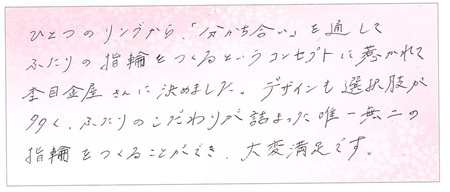 ひとつのリングから、「分かち合い」を通して
ふたりの指輪をつくるというコンセプトに惹かれて
杢目金屋さんに決めました。デザインも選択肢が
多く、ふたりのこだわりが詰まった唯一無二の
指輪をつくることができ、大変満足です。